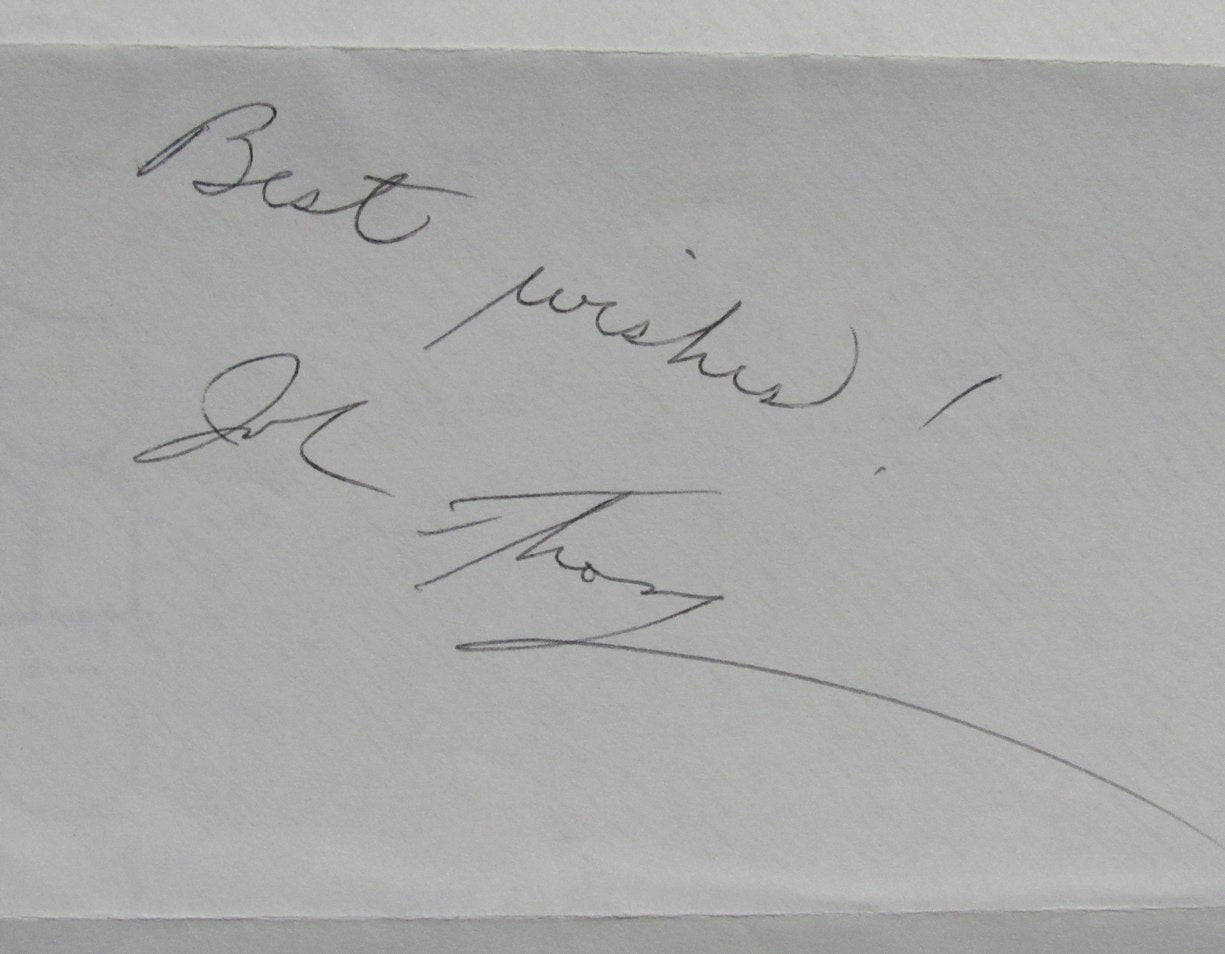 Best wishes!
John Thomas